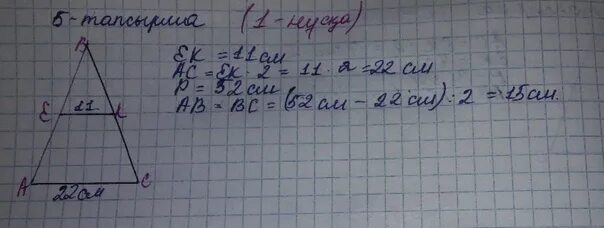 5-тапсырма (1-нұсқа)
B
EK = 11 см
AC = EK · 2 = 11 · 2 = 22 см
P = 52 см
AB = BC = (52 см - 22 см) : 2 = 15 см.
E 11
A 22 см C